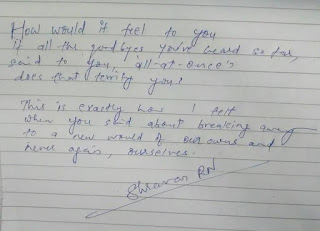 How would it feel to you
if all the goodbyes you've heard so far,
said to you, 'all-at-once's
does that terrify you?
This is exactly how I felt
when you said about breaking away
to a new world of our owns and
never again, ourselves.
Shravan RN